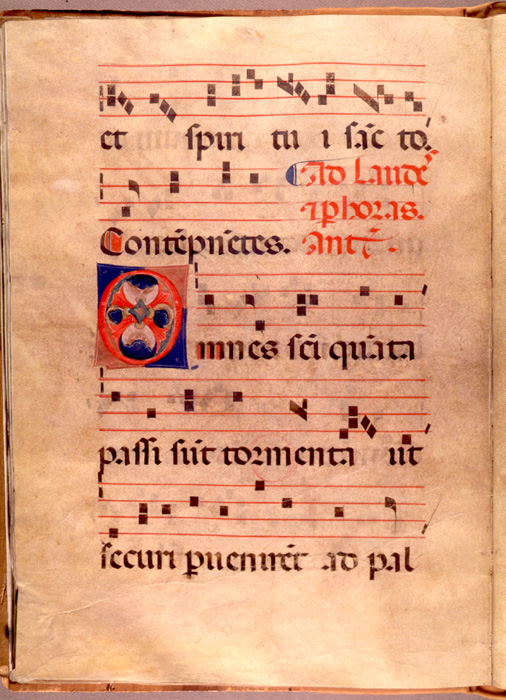 et spiri tu i sāc to.
Ad laude
⁊ p horas.
Contēpnētes. Antᷓ.
Omnes sci̅ quāta
passi sūt tormenta ut
securi puenirēt ad pal